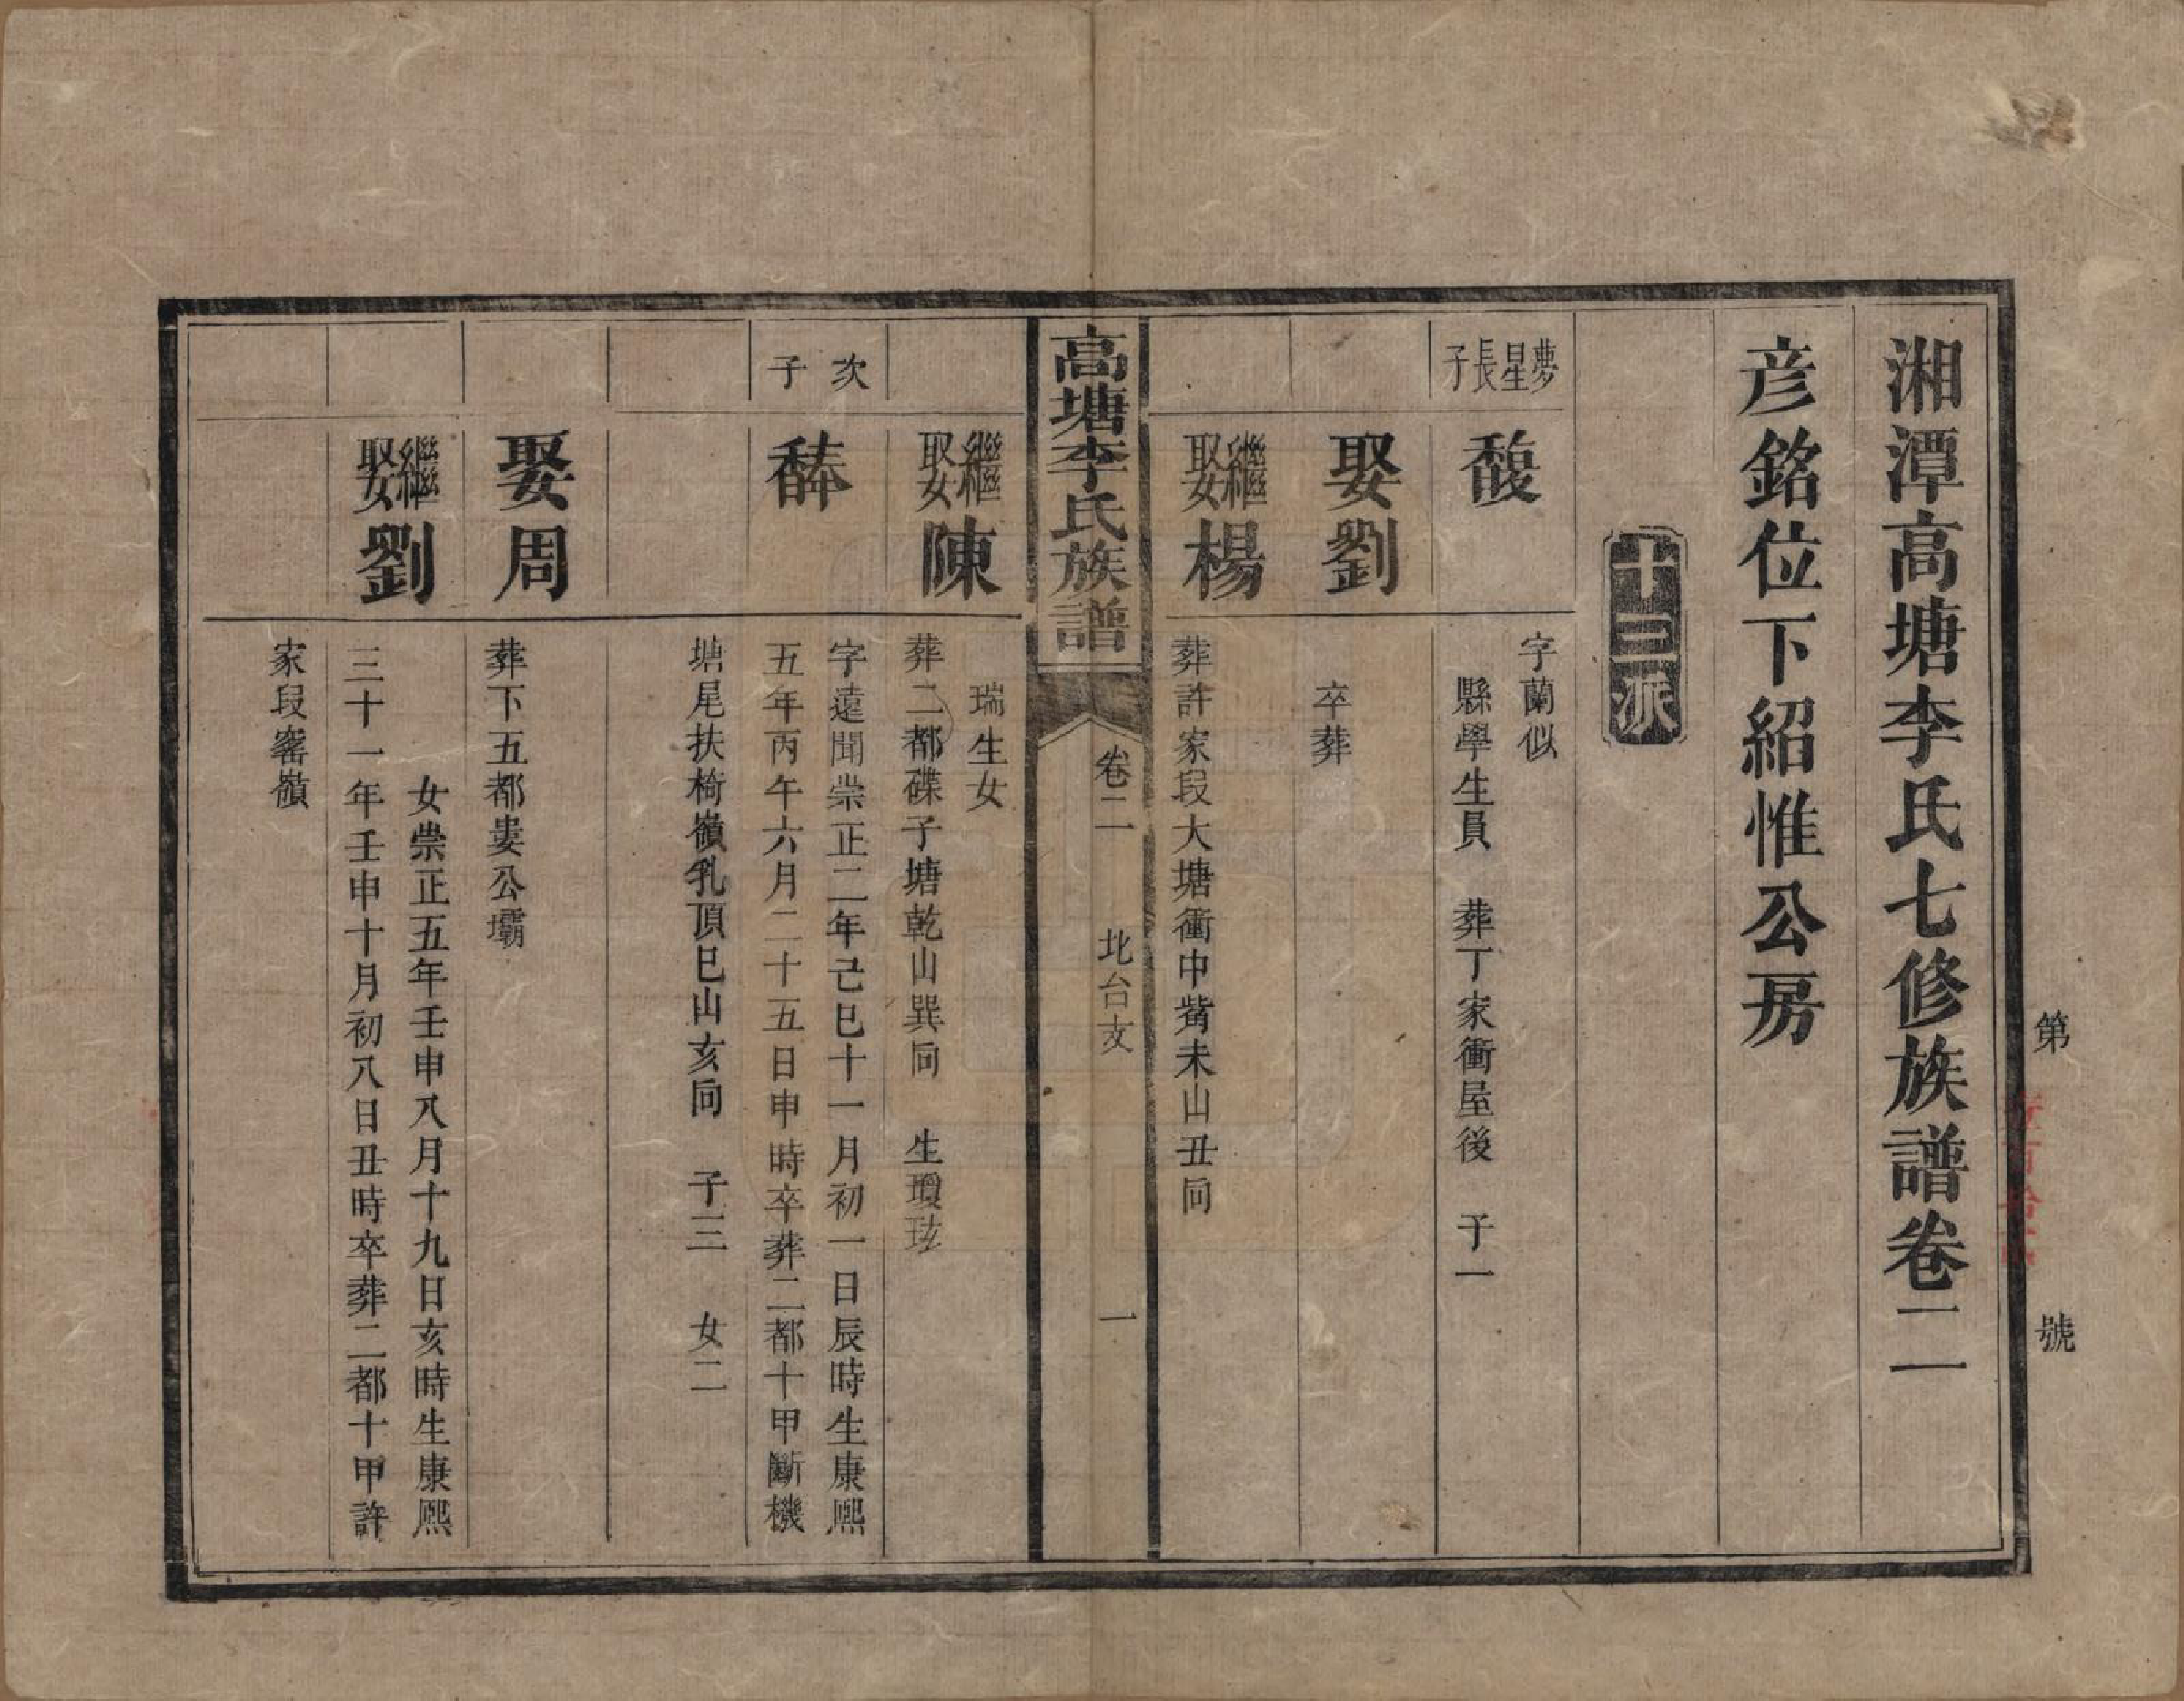 第　號
湘潭高塘李氏七修族譜卷二一
彥銘位下紹惟公房
十三派
夢星長子
馥
字蘭似
縣學生員　葬丁家衝屋後　子一
娶劉
卒葬
繼娶楊
葬許家段大塘衝中觜未山丑向
高塘李氏族譜
卷二　北台支　一
繼娶陳
瑞生女
葬二都磜子塘乾山巽向　生瓊玹
次子
𩡋
字遠聞崇正二年己巳十一月初一日辰時生康熙
五年丙午六月二十五日申時卒葬二都十甲斷機
塘尾扶椅嶺乳頂巳山亥向　子三　女二
娶周
葬下五都婁公壩
繼娶劉
女崇正五年壬申八月十九日亥時生康熙
三十一年壬申十月初八日丑時卒葬二都十甲許
家段窰嶺